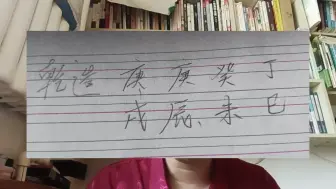 乾造 庚 庚 癸 丁
戌 辰、未 巳